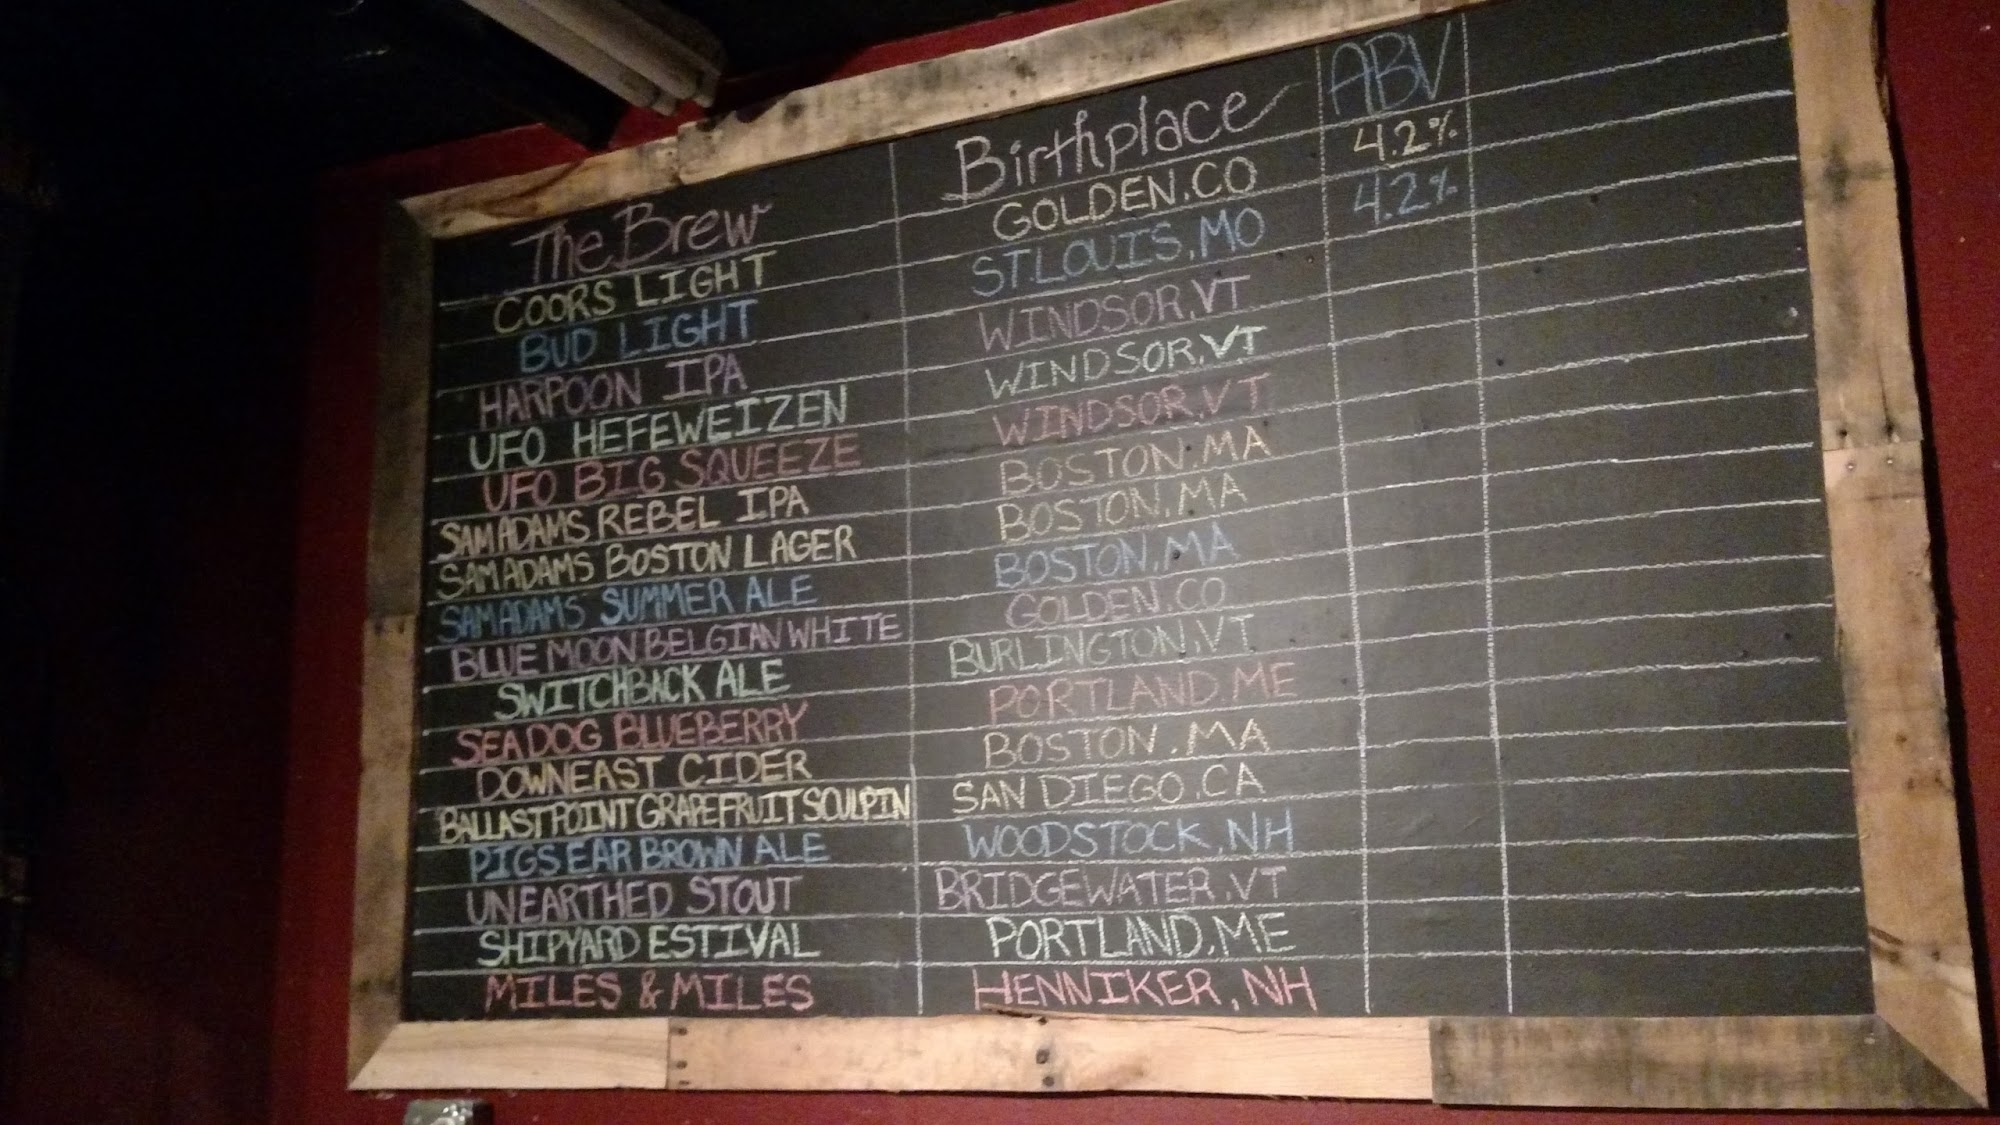 The Brew Birthplace ABV
COORS LIGHT GOLDEN, CO 4.2%
BUD LIGHT ST. LOUIS, MO 4.2%
HARPOON IPA WINDSOR, VT
UFO HEFEWEIZEN WINDSOR, VT
UFO BIG SQUEEZE WINDSOR, VT
SAM ADAMS REBEL IPA BOSTON, MA
SAM ADAMS BOSTON LAGER BOSTON, MA
SAM ADAMS SUMMER ALE BOSTON, MA
BLUE MOON BELGIAN WHITE GOLDEN, CO
SWITCHBACK ALE BURLINGTON, VT
SEA DOG BLUEBERRY PORTLAND, ME
DOWNEAST CIDER BOSTON, MA
BALLAST POINT GRAPEFRUIT SCULPIN SAN DIEGO, CA
PIGS EAR BROWN ALE WOODSTOCK, NH
UNEARTHED STOUT BRIDGEWATER, VT
SHIPYARD ESTIVAL PORTLAND, ME
MILES & MILES HENNIKER, NH